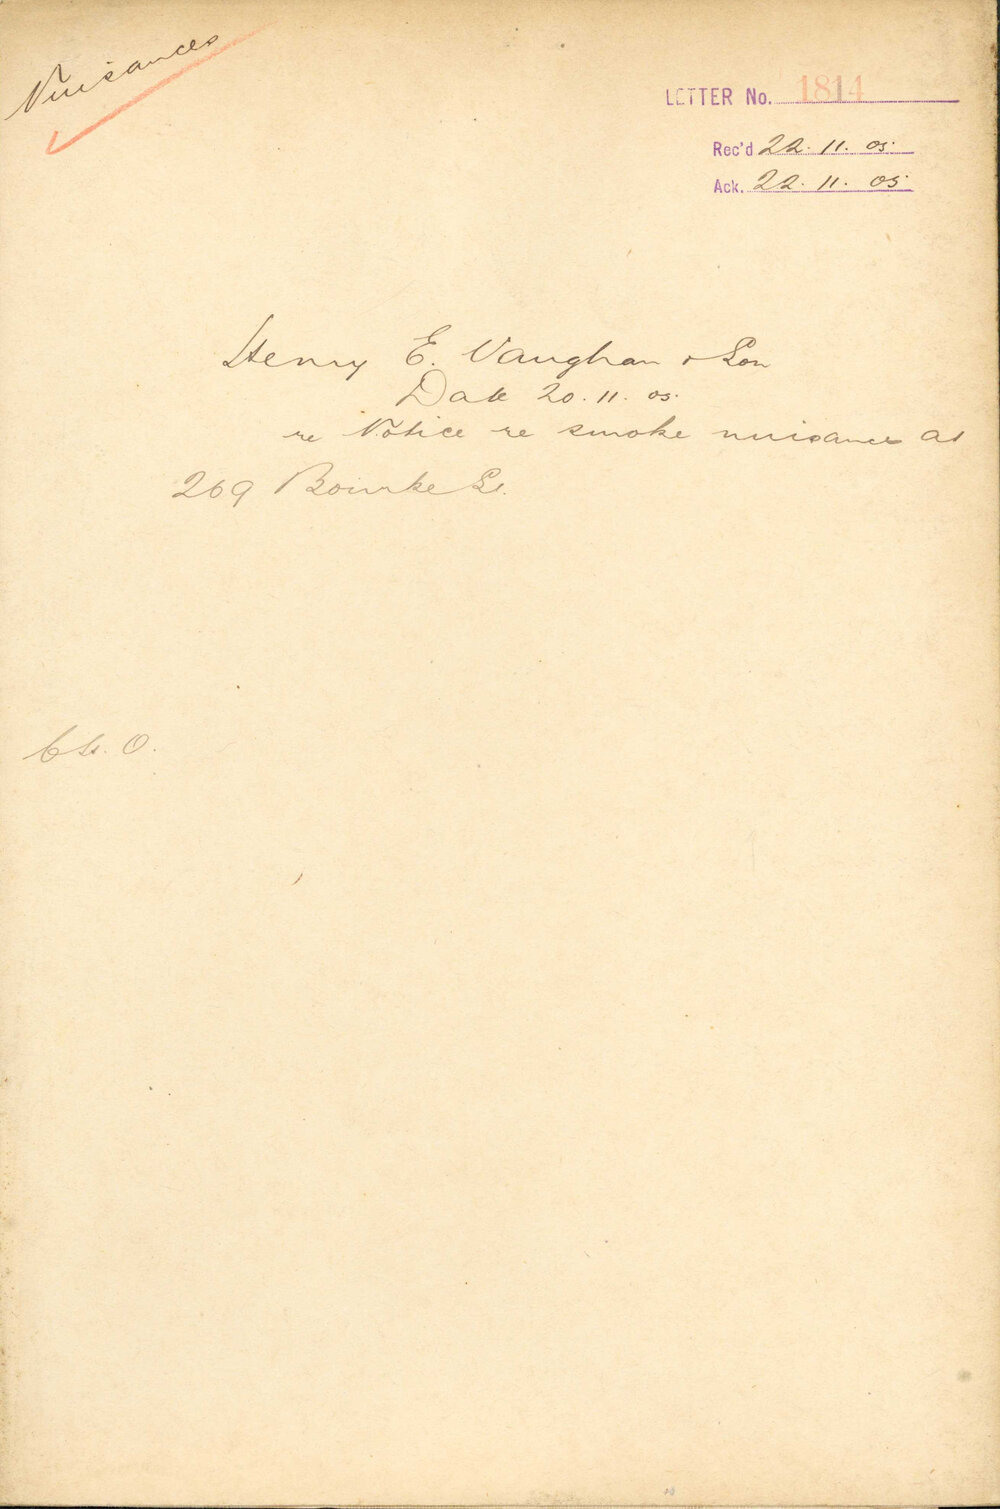 Nuisances
LETTER No. 1814
Rec'd 22. 11. 05.
Ack. 22. 11. 05.
Henry E. Vaughan & Son
Date 20. 11. 05.
re Notice re smoke nuisance at
269 Bourke St.
O.